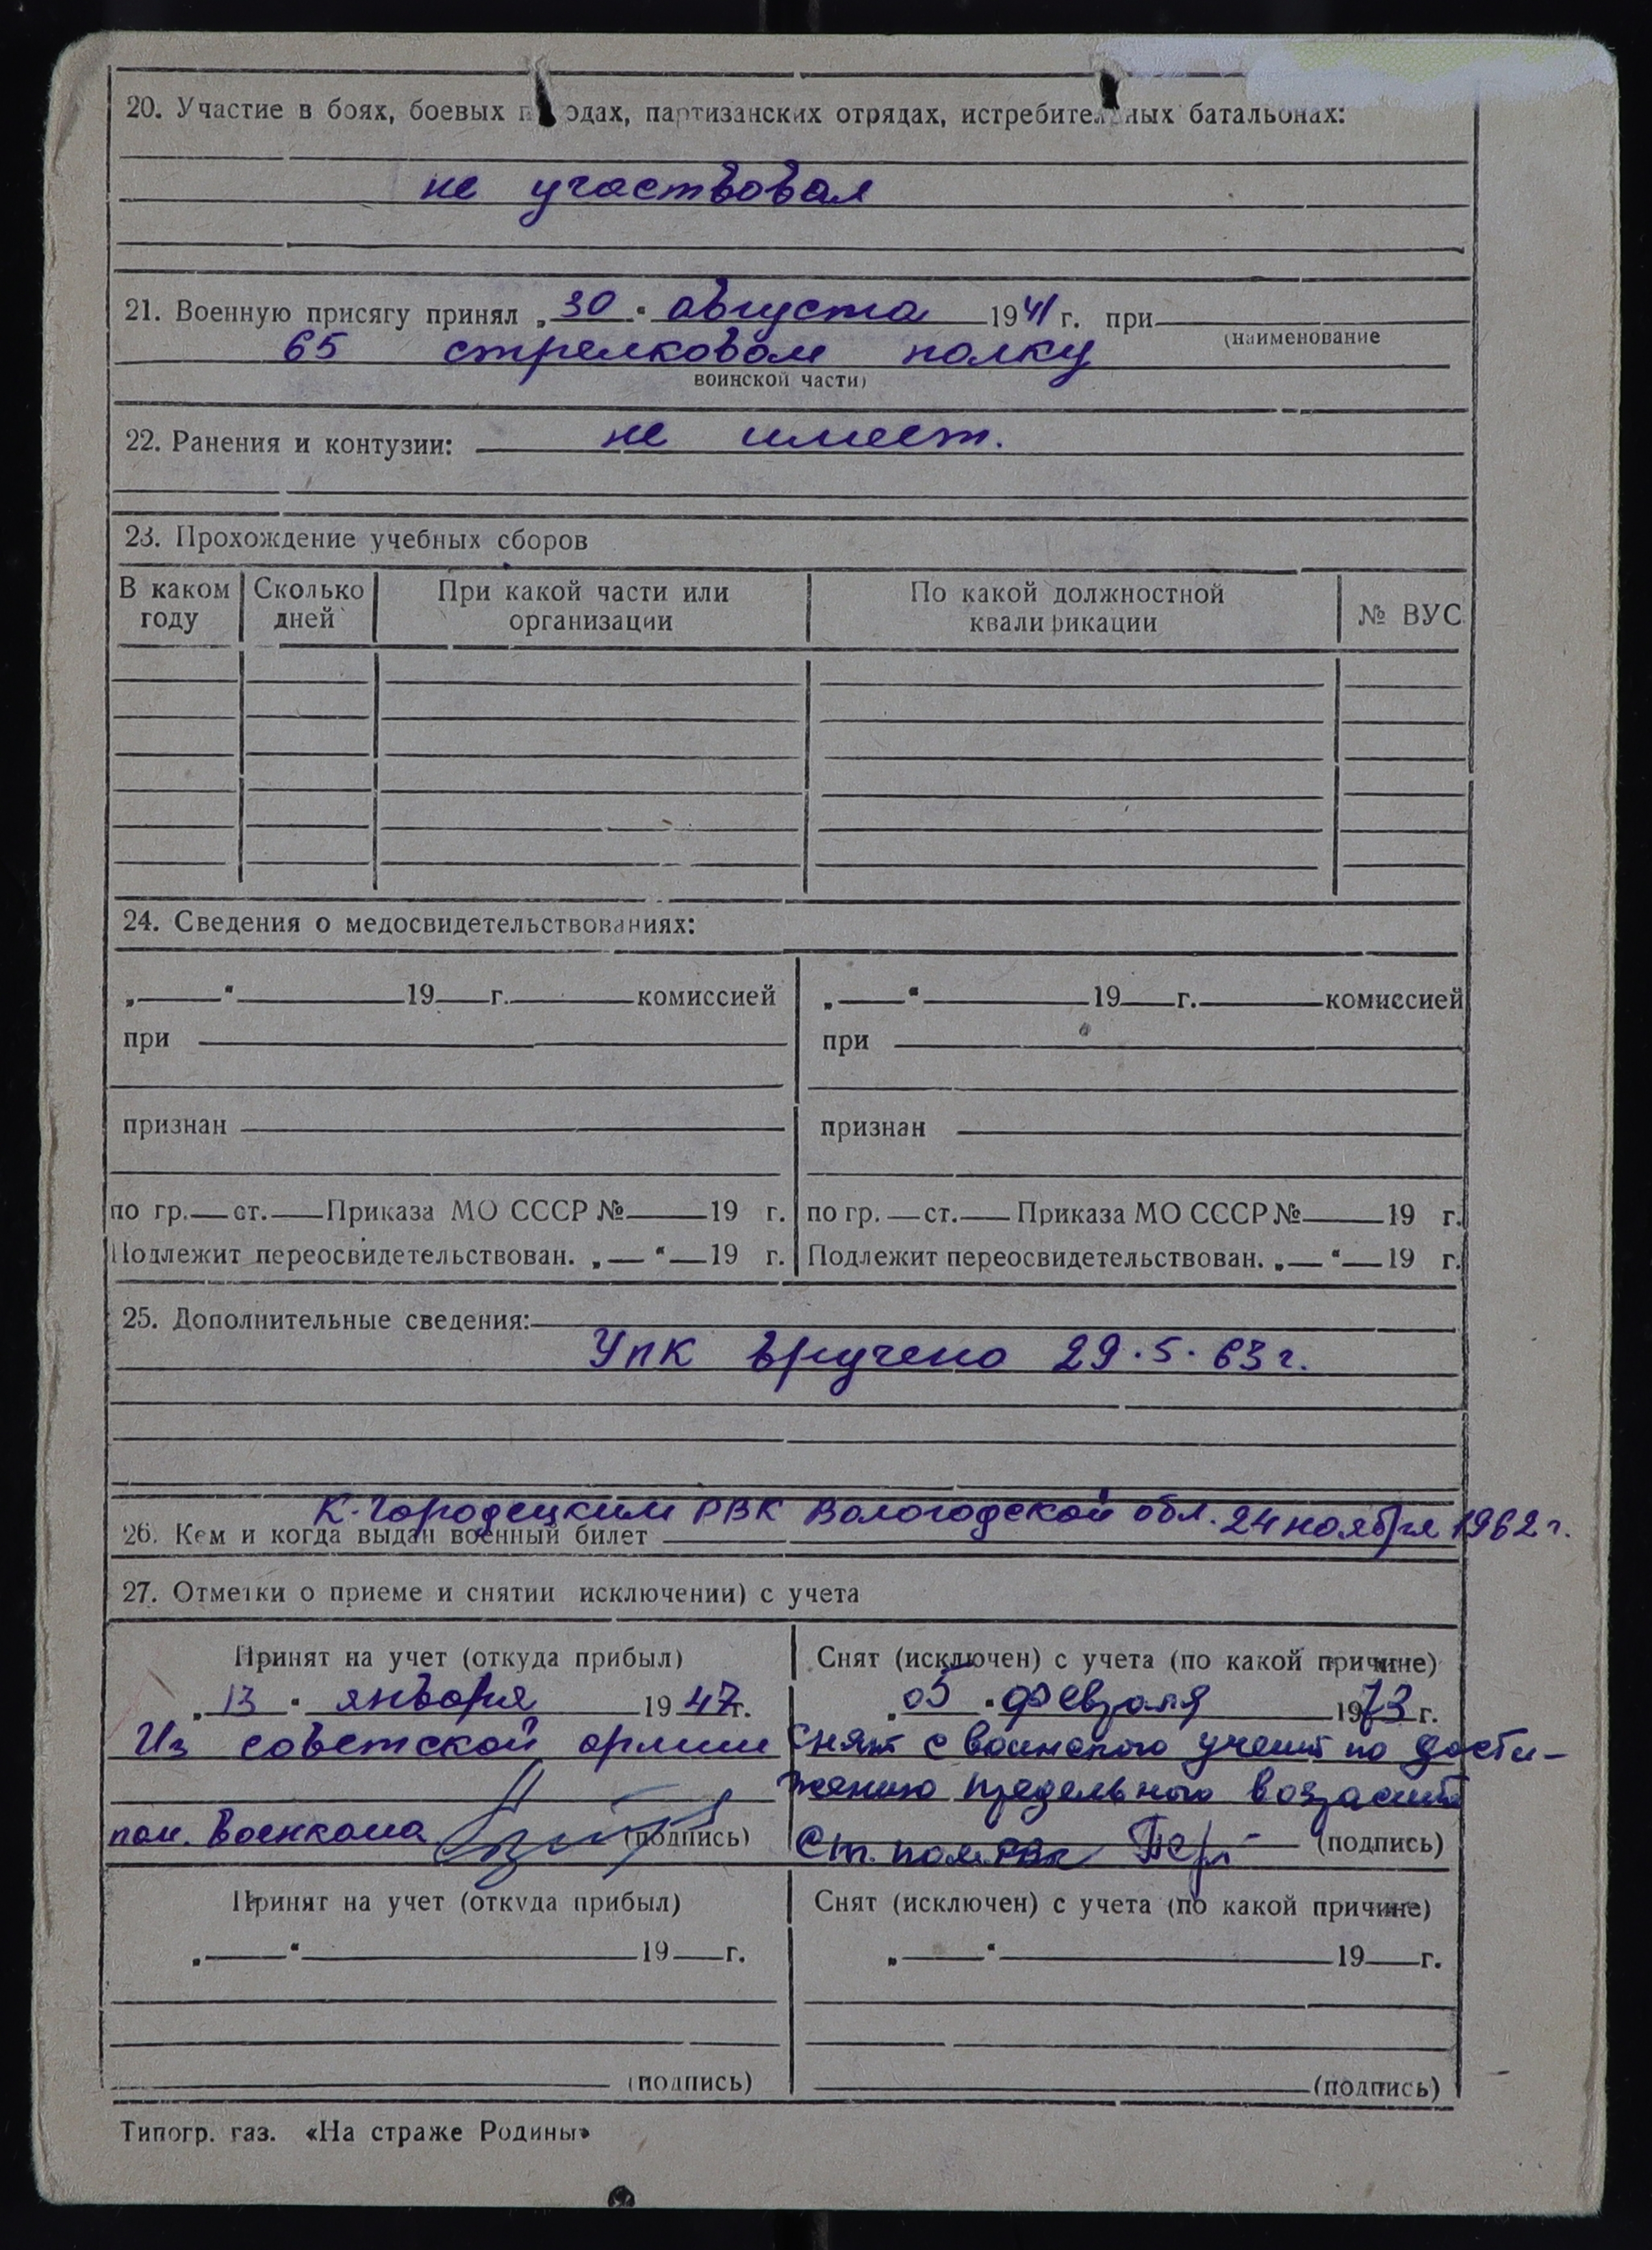 20. Участие в боях, боевых п одах, партизанских отрядах, истребител ных батальонах:
не участвовал
21. Военную присягу принял „30" августа 1941 г. при
(наименование
65 стрелковом полку
воинской части)
22. Ранения и контузии: не имеет.
23. Прохождение учебных сборов
В каком году | Сколько дней | При какой части или организации | По какой должностной квалификации | № ВУС
24. Сведения о медосвидетельствованиях:
„ " 19 г. комиссией | „ " 19 г. комиссией
при | при
признан | признан
по гр. ст. Приказа МО СССР № 19 г. | по гр. ст. Приказа МО СССР № 19 г.
Подлежит переосвидетельствован. „ " 19 г. | Подлежит переосвидетельствован. „ " 19 г.
25. Дополнительные сведения:
УПК вручено 29.5.63 г.
К-Городецким РВК Вологодской обл. 24 ноября 1962 г.
26. Кем и когда выдан военный билет
27. Отметки о приеме и снятии исключении) с учета
Принят на учет (откуда прибыл) | Снят (исключен) с учета (по какой причине)
„13" января 1947 г. | „05" февраля 1973 г.
Из советской армии | Снят с воинского учета по дости-
жению предельного возраста
пом. Военкома (подпись) | Ст. пом. РВК (подпись)
Принят на учет (откуда прибыл) | Снят (исключен) с учета (по какой причине)
„ " 19 г. | „ " 19 г.
(подпись) | (подпись)
Типогр. газ. «На страже Родины»